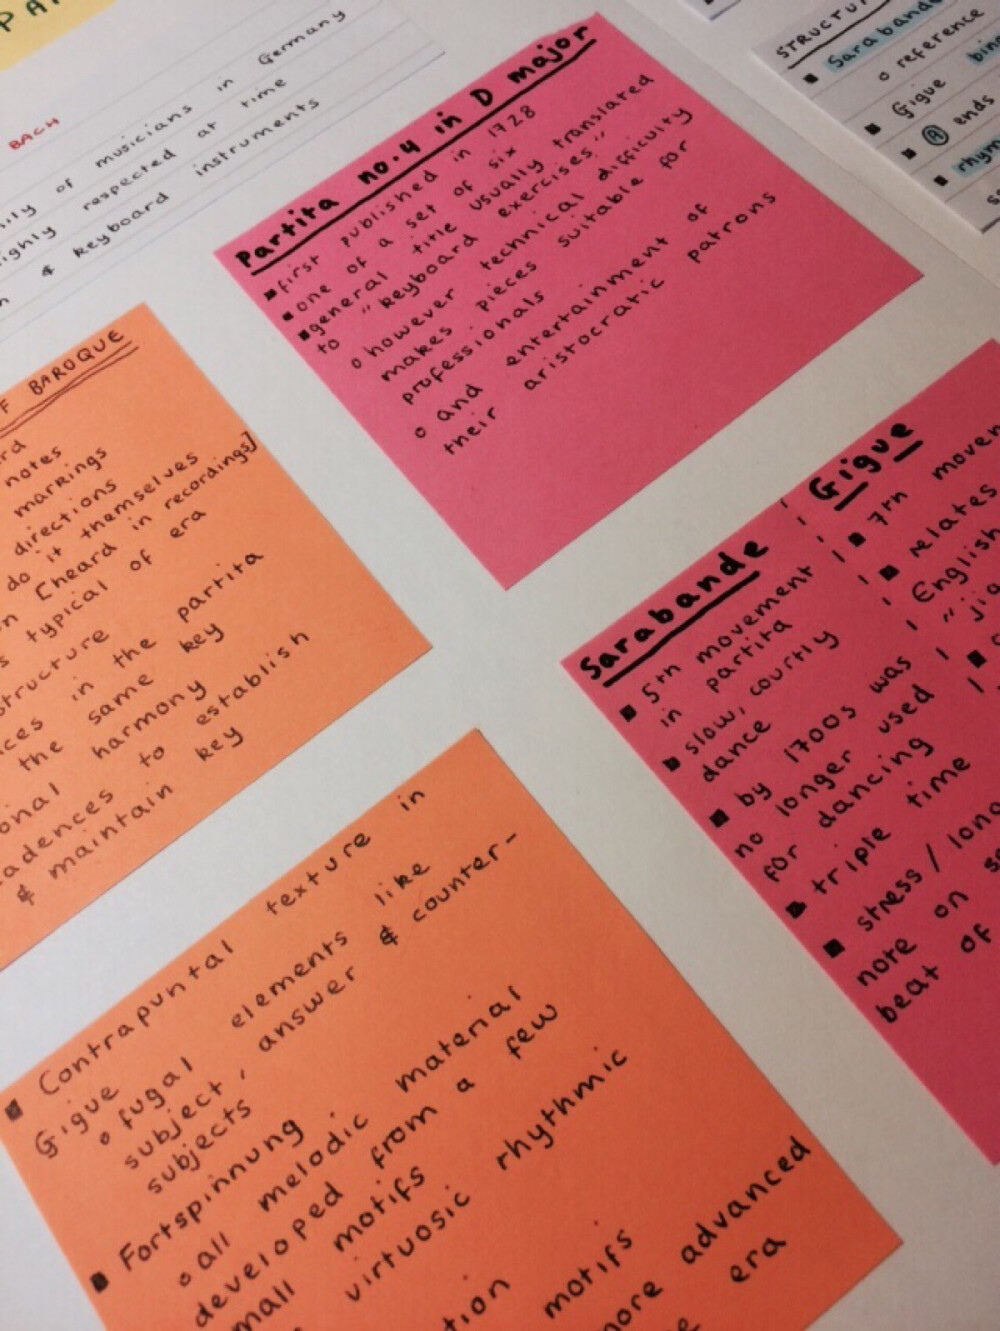 PA
BACH
of musicians in Germany
highly respected at time
& keyboard instruments
Partita no.4 in D major
▪first published in 1728
▪one of a set of six
▪general title usually translated
to "keyboard exercises"
o however technical difficulty
makes pieces suitable for
professionals
o and entertainment of
their aristocratic patrons
STRUCTU
▪ Sarabande
o reference
▪ Gigue bin
▪ Ⓐ ends
▪ rhym
F BAROQUE
notes
markings
directions
do it themselves
[heard in recordings]
typical of era
structure
in the partita
the same key
harmony
cadences to establish
& maintain key
Sarabande
▪ 5th movement
in partita
▪ slow, courtly
dance
▪ by 1700s was
no longer used
for dancing
▪ triple time
▪ stress / long
note on se
beat of
Gigue
▪ 7th movem
▪ relates
English
"jig
▪ Contrapuntal texture in
Gigue
o fugal elements like
subject, answer & counter-
subjects
▪ Fortspinnung
o all melodic material
developed from a few
small motifs
virtuosic rhythmic
motifs
more advanced
era